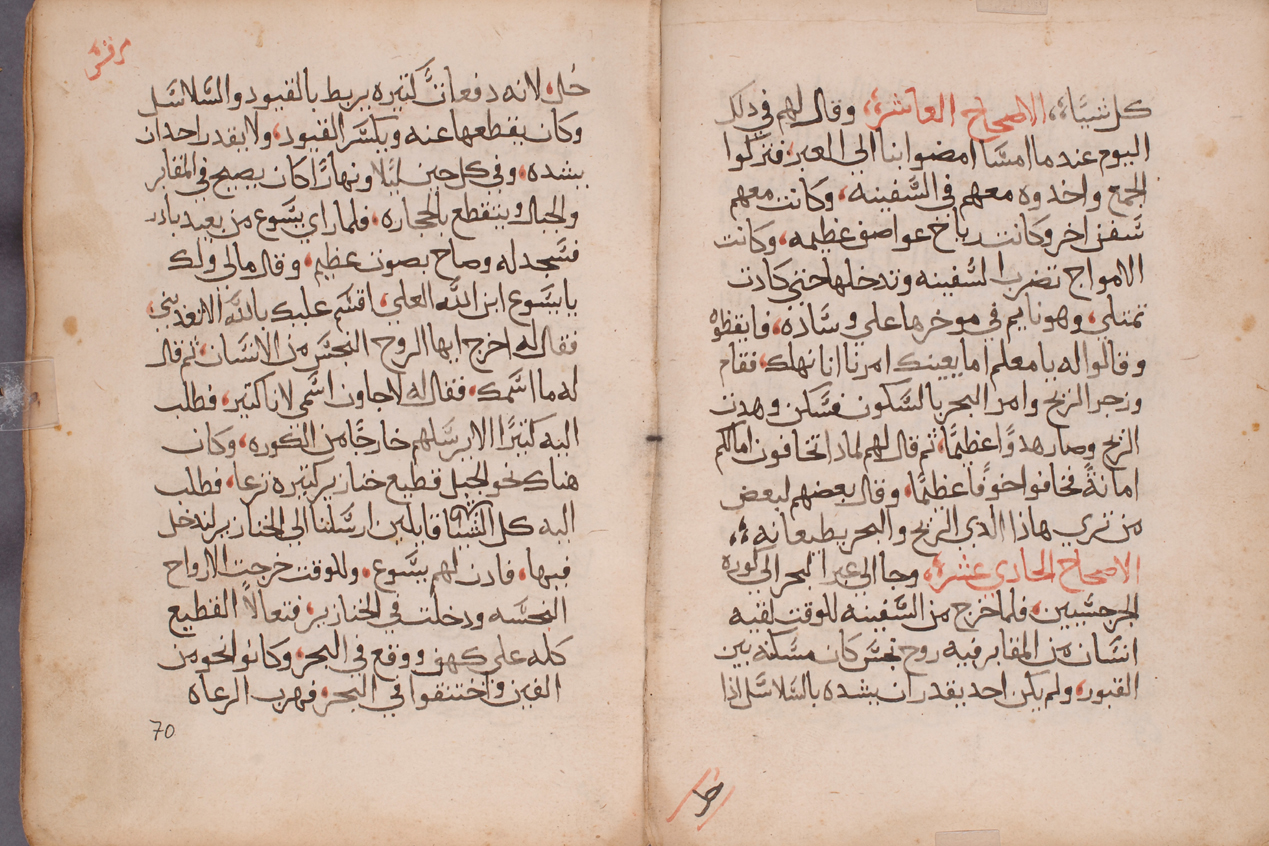 كل شيًا، الاصحاح العاشر، وقال لهم في ذلك
اليوم عند ما امسا امضوا بنا الي العبر، فتركوا
الجمع واخدوه معهم في السفينه، وكانت معهم
سفن اخر وكانت رياح عواصف عظيمه، وكانت
الامواج تضرب السفينه وتدخلها حتي كادت
تمتلي، وهو نايم في موخرها علي وساده، فايقظوه
وقالوا له يا معلم اما يعينك امرنا اننا نهلك، فقام
وزجر الريح وامر البحر بالسكون فسكن وهدت
الريح وصار هدوًا عظيمًا، ثم قال لهم لماذا تخافون امالكم
امانةً فخافوا خوفًا عظيمًا، وقال بعضهم لبعض
من تري هاذا الذي الريح والبحر يطيعانه،
الاصحاح الحادي عشر، وجا الي عبر البحر الي كورة
الجرجسيين، فلما خرج من السفينه للوقت لقيه
انسان من المقابر فيه روح نجس كان مسكنه بين
القبور، ولم يكن احد يقدر ان يشده بالسلاسل اذا
حُل، لانه دفعاتٍ كتيره يربط بالقيود والسلاسل
وكان يقطعها عنه ويكسر القيود، ولا يقدر احد ان
يشده، وفي كل حين ليلًا ونهارًا كان يصيح في المقابر
والجبال ويتقطع بالحجاره، فلما راي يسوع من بعيد بادر
فسجد له وصاح بصوت عظيم، وقال مالي ولك
يا يسوع ابن الله العلي، اقسم عليك بالله الا تعذبني،
فقال له اخرج ايها الروح النجس من الانسان، ثم قال
له ما اسمك، فقال له لاجاون اسمي لانا كتير، فطلب
اليه كتيرًا الا يرسلهم خارجًا من الكوره، وكان
هناك نحو الجبل قطيع خنازير كتيره ترعا، فطلب
اليه كل قايلين ارسلنا الي الخنازير لندخل
فيها، فادن لهم يسوع، وللوقت خرجت الارواح
النجسه ودخلت في الخنازير، فتعالا القطيع
كله علي كهف ووقع في البحر، وكانوا نحو من
الفين واختنقوا في البحر، فهرب الرعاه
70